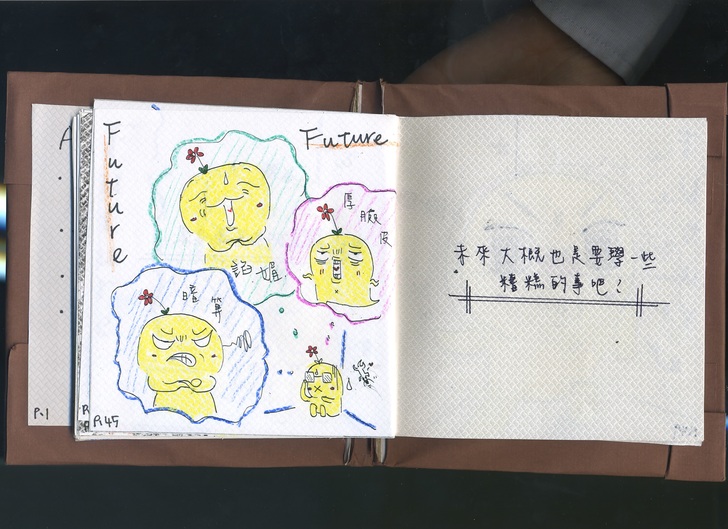 Future
Future
諂媚
厚臉皮
暗算
P.45
P.1
未來大概也是要學一些
糟糕的事吧？